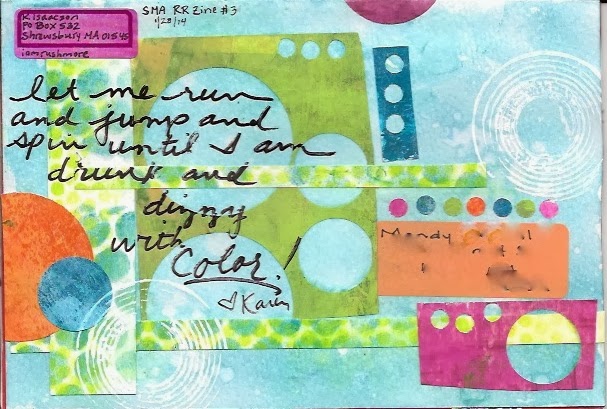 K. Isaacson
PO Box 532
Shrewsbury MA 01545
iamrushmore
SMA RR Zine #3
1/28/14
let me run
and jump and
spin until I am
drunk and
dizzy
with
Color!
♡Karen
Mandy